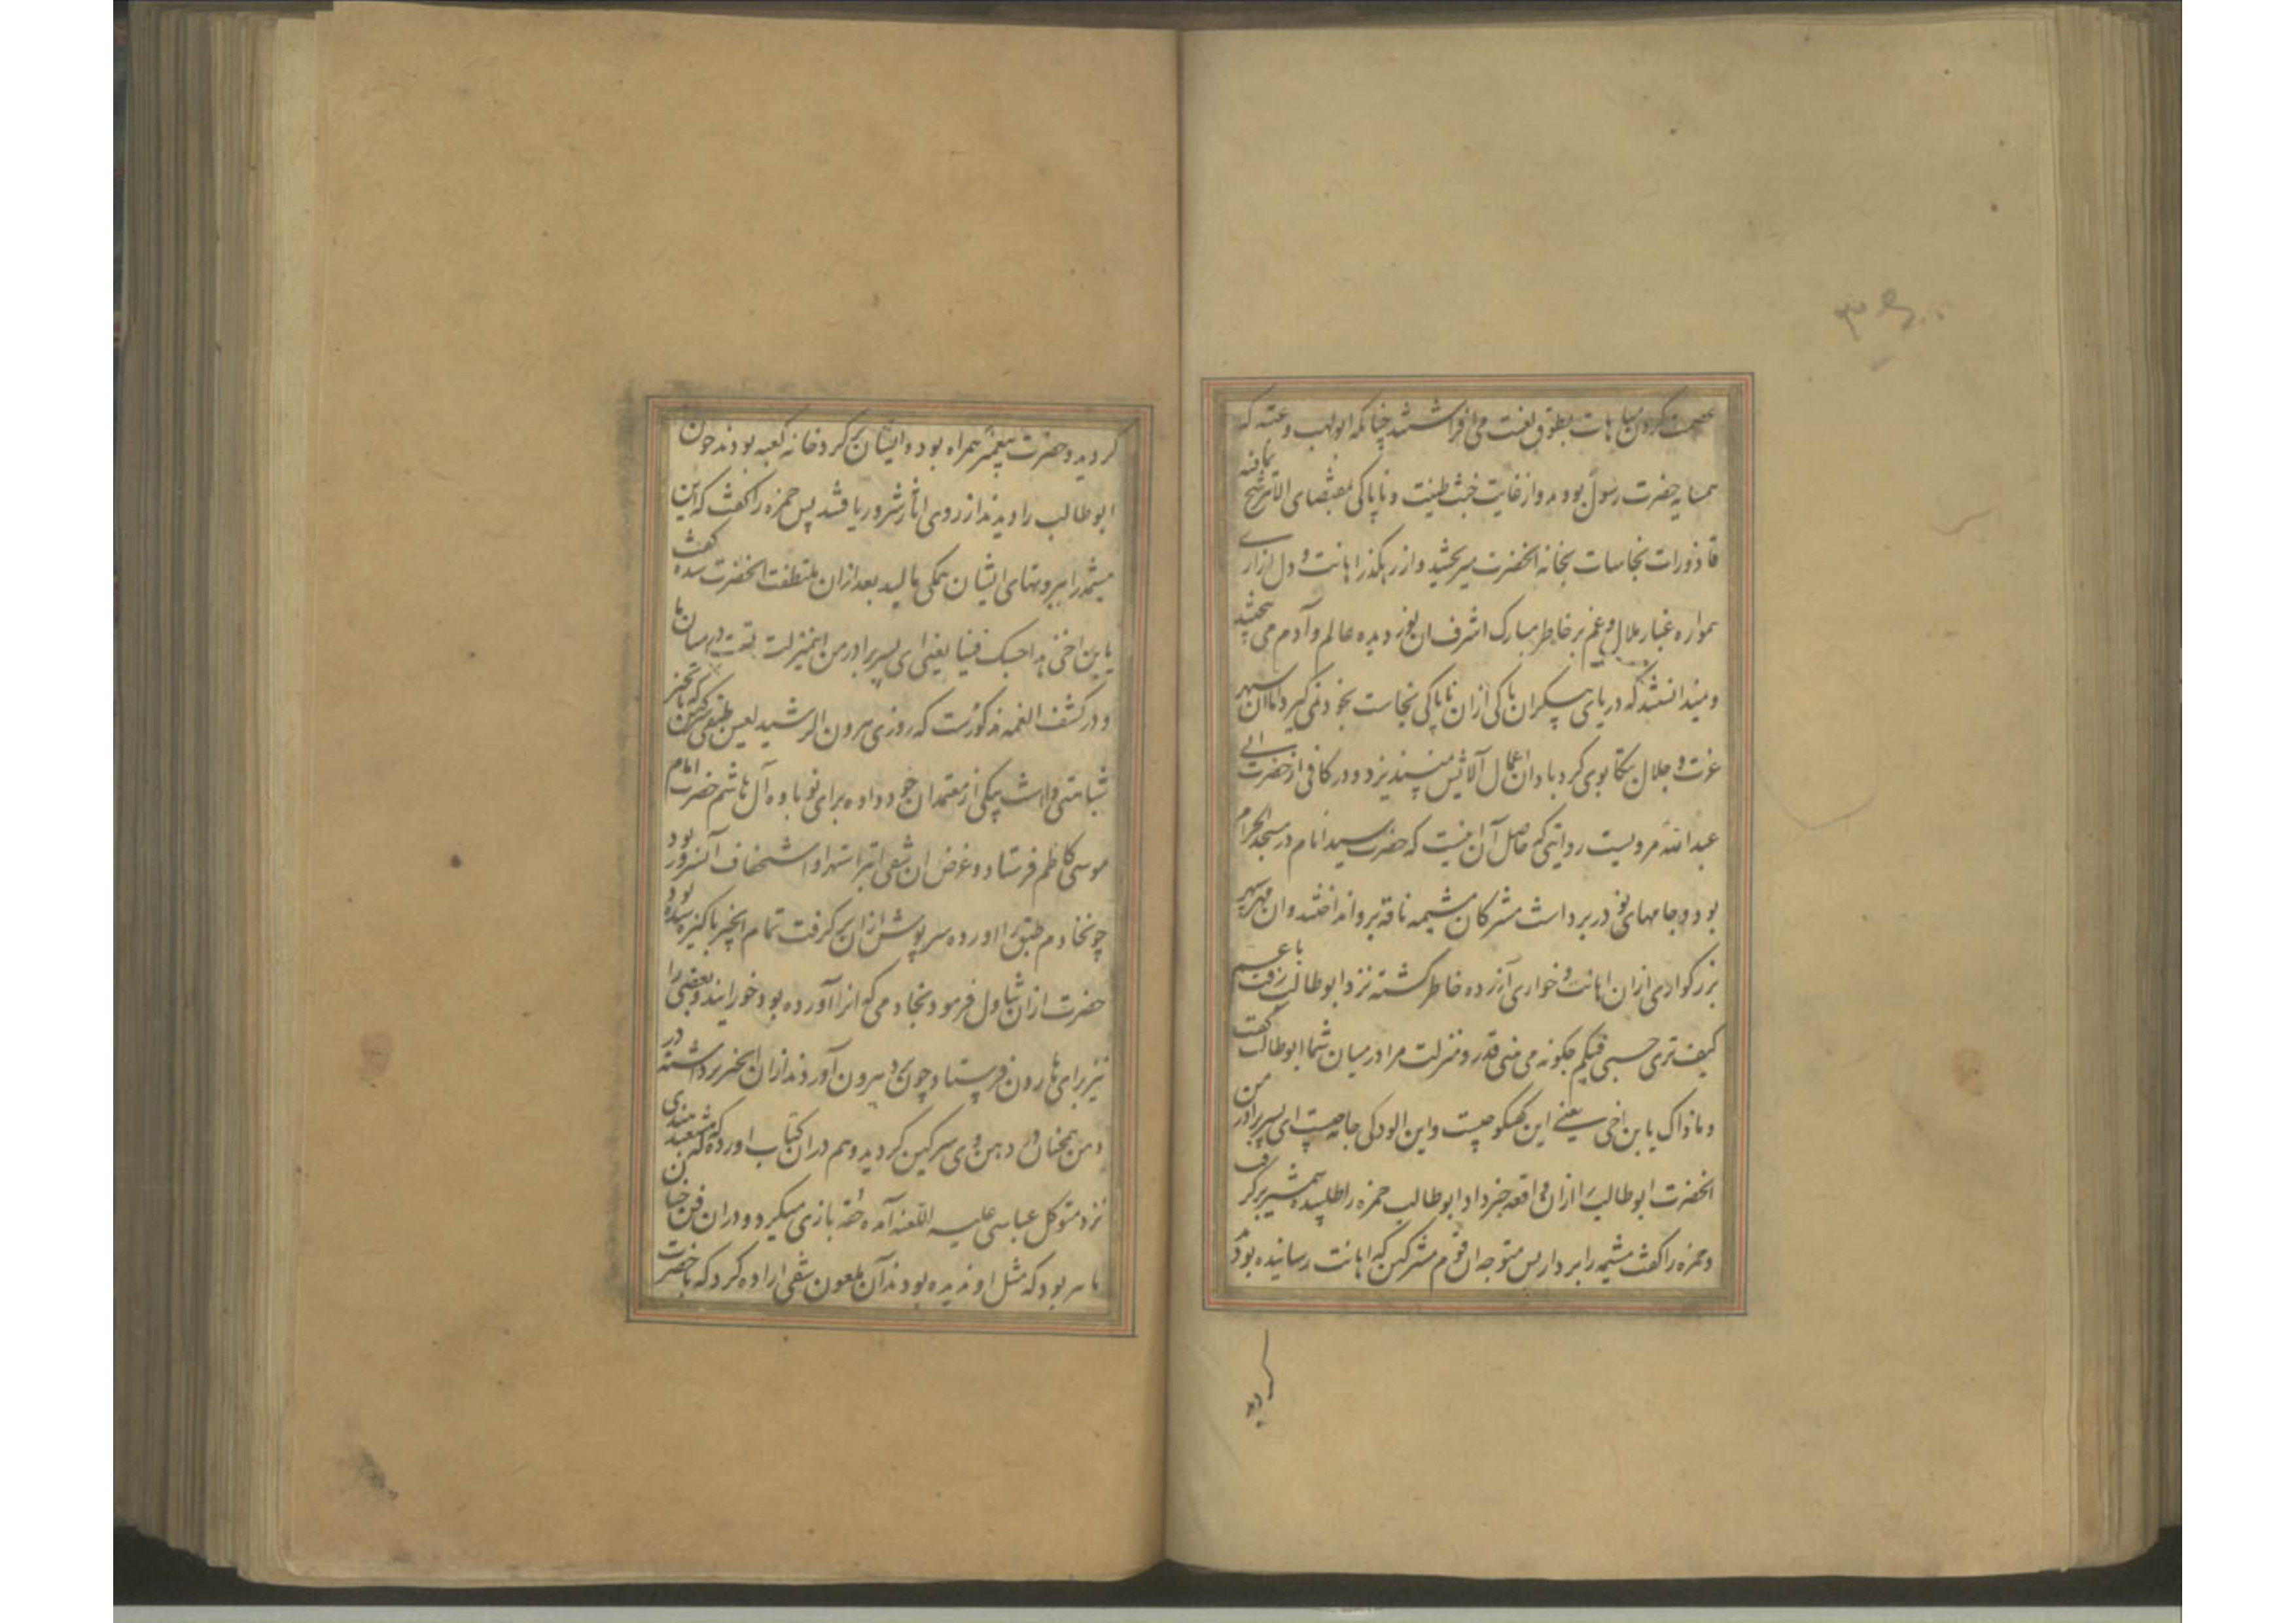 عصمت کردن مباهات بطوق لعنت می افراشتند چنانکه ابولهب و عتبه که
همسایه حضرت رسول بودند و از غایت خبث طینت و ناپاکی بمقتضای الاناء یترشح بما فیه
قاذورات نجاسات بخانه انحضرت میریختند و از رهگذر اهانت و دل ازاری
همواره غبار ملال و غم بر خاطر مبارک اشرف ان نور دیده عالم و آدم می بیختند
و میدانستند که دریای بیکران پاکی از ان ناپاکی نجاست بخود نمی گیرد و دامان سپهر
عزت و جلال بتکاپوی کرد باد ان اعمال آلایش نپذیرد و در کافی از حضرت ابی
عبدالله مرویست روایتی که حاصل آن اینست که حضرت سید انام در مسجد الحرام
بود و جامهای نو در بر داشت مشرکان مشیمه ناقه برو انداختند و ان مهر سپهر
بزرکواری از ان اهانت و خواری آزرده خاطر کشته نزد ابوطالب رفت و گفت یا عم
کیف تری حسبی فیکم چکونه می بینی قدر و منزلت مرا در میان شما ابوطالب گفت
و ما ذاک یا بن اخی یعنی این گفتگو چیست و این الودکی جامه چیست ای پسر برادر من
انحضرت ابوطالب را از ان واقعه خبر داد ابوطالب حمزه را طلبیده شمشیر بر گرفت
و حمزه را گفت مشیمه را بردار پس متوجه ان قوم مشرکین که اهانت رسانیده بودند
گردید
گردید و حضرت پیغمبر همراه بود و ایشان بر کرد خانه کعبه بودند چون
ابوطالب را دیدند از روی او آثار شر دریافتند پس حمزه را گفت که این
مشیمه را ببروتهای ایشان همکی مالید بعد از ان ملتفت انحضرت شده گفت
یا بن اخی هذا حسبک فینا یعنی ای پسر برادر من اینمنزلت تست در میان ما
و در کشف الغمه مذکورست که روزی هرون الرشید لعین طبقی سرکین که بانجیر
شباهتی داشت بیکی از معتمدان خود داده برای نوباوه آل هاشم حضرت امام
موسی کاظم فرستاد و غرض ان شقی ابتر استهزا و استخفاف آنسرور بود
چون خادم طبق را اورده سرپوش از ان بر کرفت تمام انجیر پاکیزه شده بود
حضرت از ان تناول فرمود و بخادمی که انرا آورده بود خورانید و بعضی را
نیز برای هارون فرستاد چون نزد او بیرون آوردند از ان انجیر برداشته در
دهن همچنان در دهن وی سرکین گردید و هم در ان کتاب اورده که مشعبد هندی
نزد متوکل عباسی علیه اللعنه آمده حقه بازی میکرد و در ان فن چنان
ماهر بود که مثل او ندیده بودند آن ملعون شقی اراده کرد که با حضرت